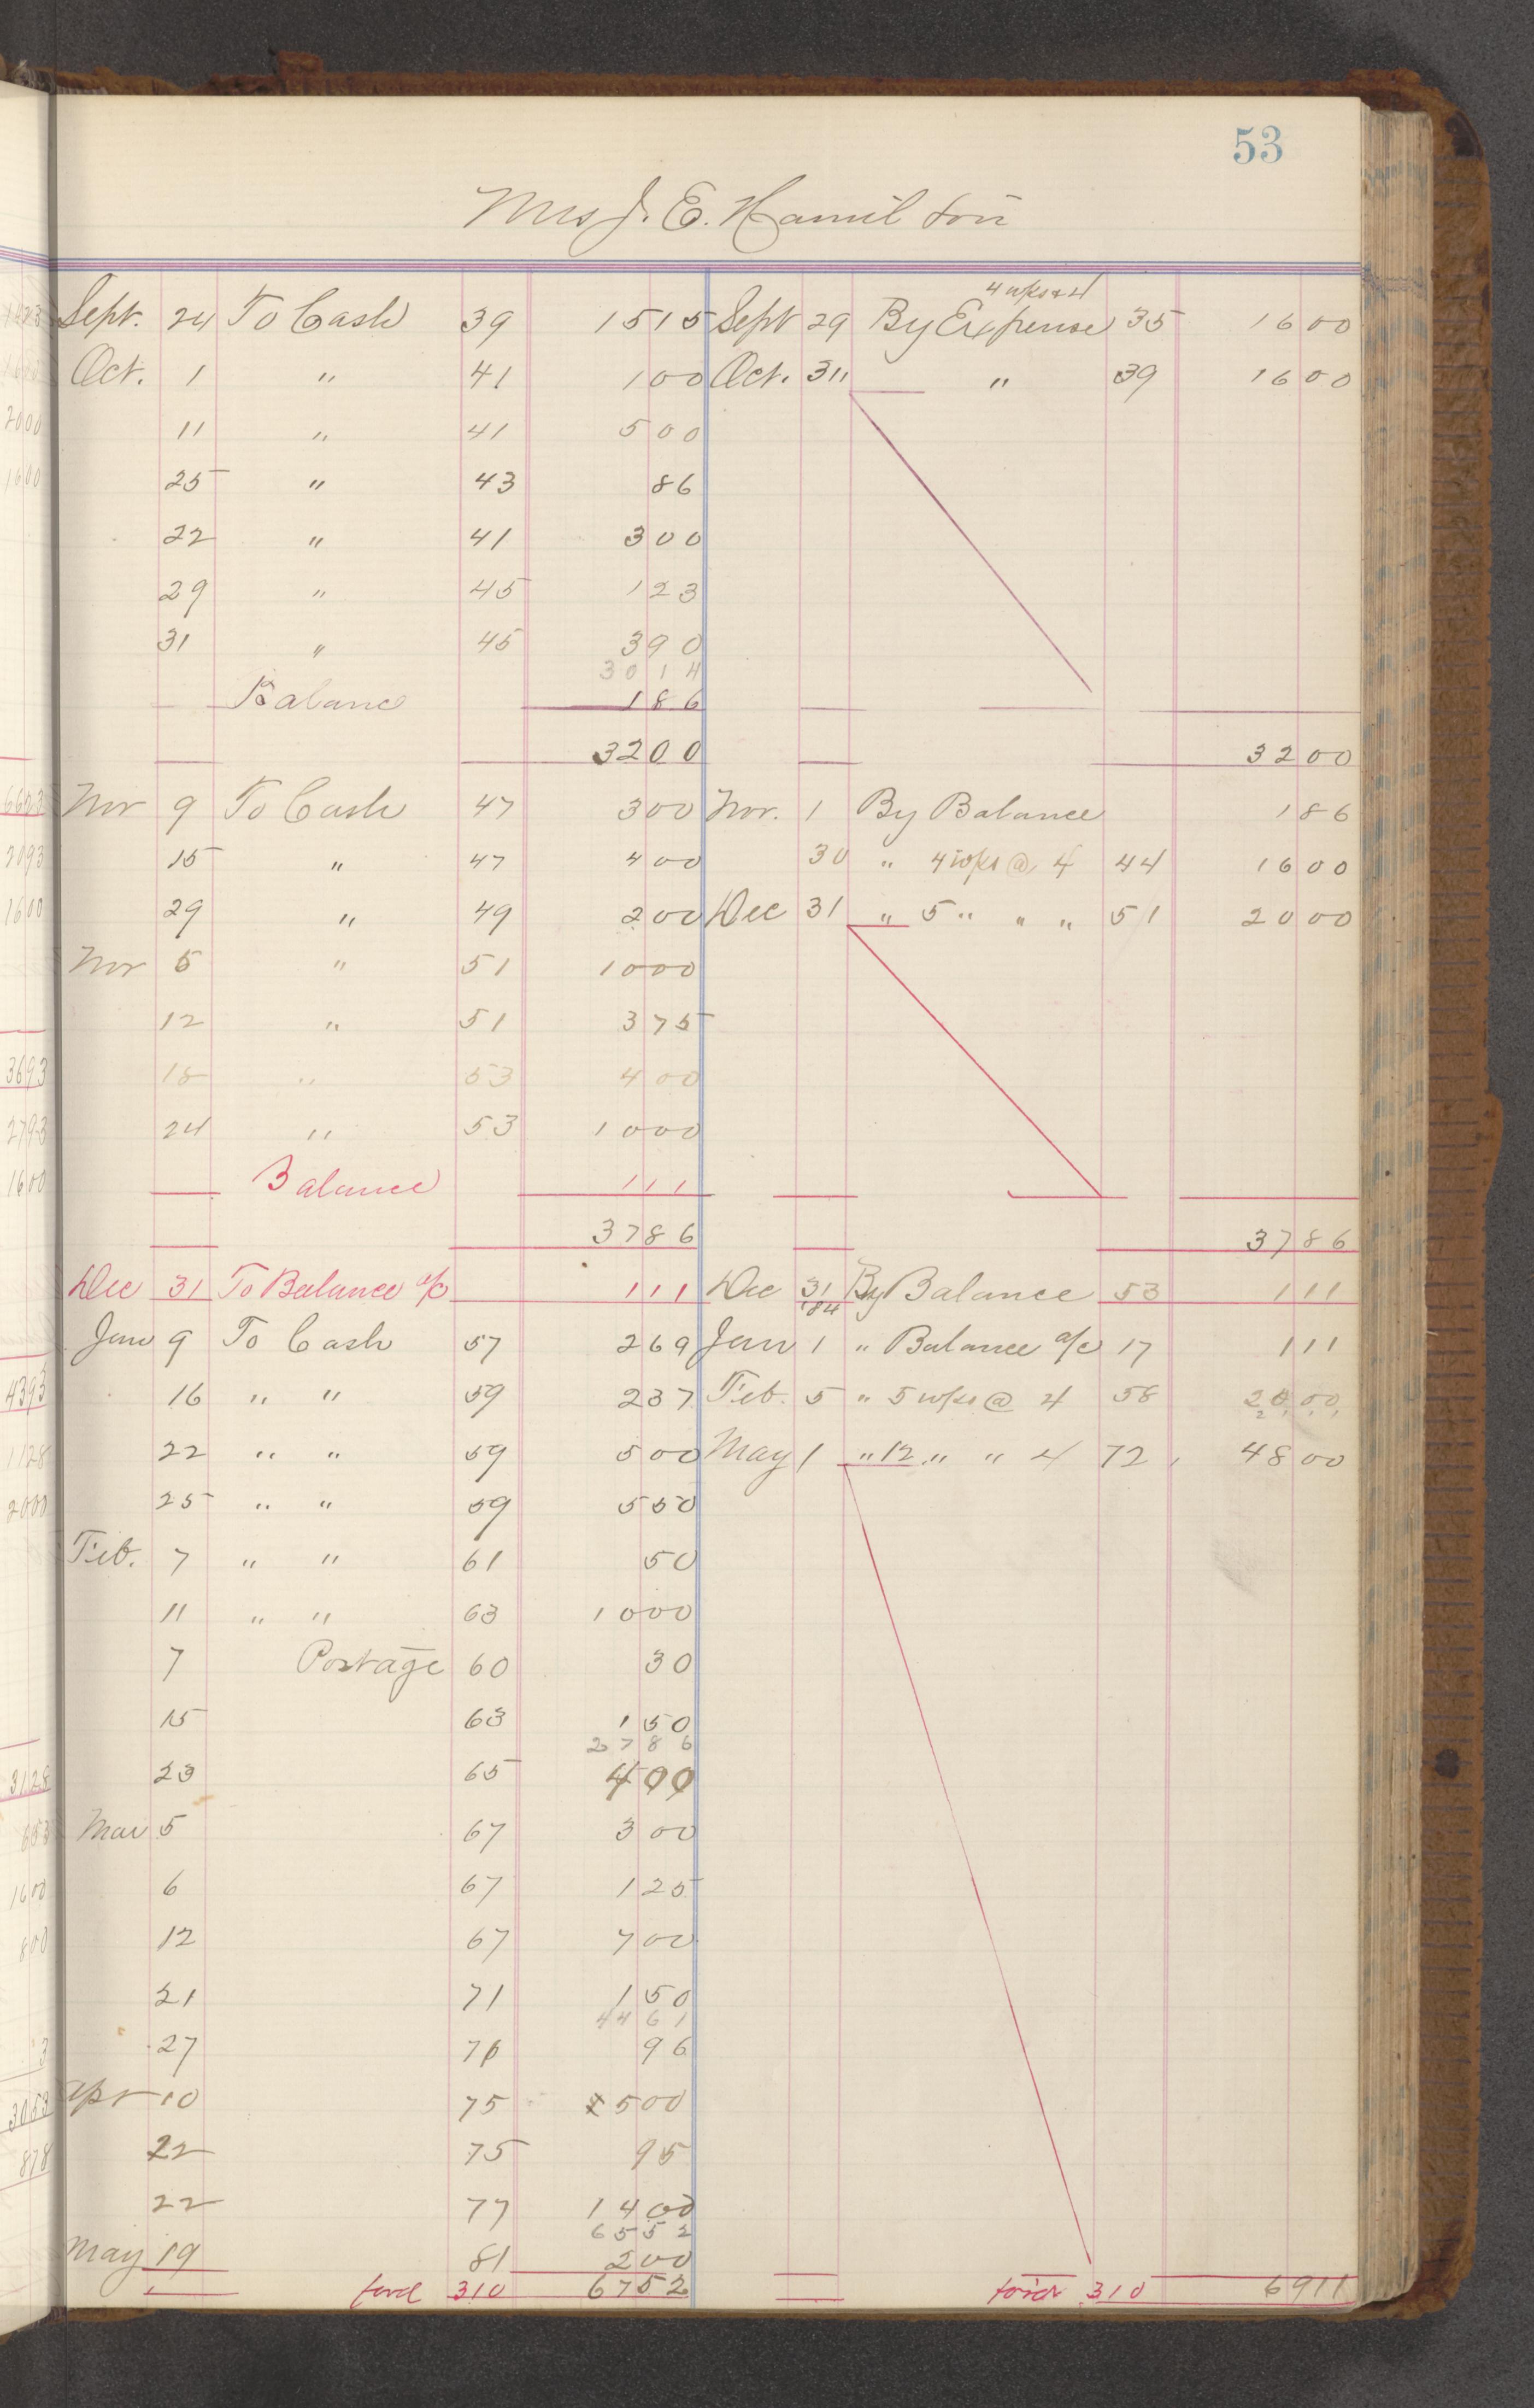 53
Mrs J. E. Hamilton
4 wks @ 4
Sept. 24 To Cash 39 15 15 Sept 29 By Expense 35 16 00
Oct. 1 " 41 1 00 Oct. 31 " " 39 16 00
11 " 41 5 00
25 " 43 86
22 " 41 3 00
29 " 45 1 23
31 " 45 3 90
30 14
Balance 1 86
32 00 32 00
Nov 9 To Cash 47 3 00 Nov. 1 By Balance 1 86
15 " 47 4 00 30 " 4 wks @ 4 44 16 00
29 " 49 2 00 Dec 31 " 5 " " " 51 20 00
Nov 5 " 51 10 00
12 " 51 3 75
18 " 53 4 00
24 " 53 10 00
Balance 1 11
37 86 37 86
Dec 31 To Balance a/c 1 11 Dec 31 By Balance 53 1 11
'84
Jan 9 To Cash 57 2 69 Jan 1 " Balance a/c 17 1 11
16 " " 59 2 37 Feb. 5 " 5 wks @ 4 58 20 00
22 " " 59 5 00 May 1 " 12 " " 4 72 48 00
25 " " 59 5 50
Feb. 7 " " 61 50
11 " " 63 10 00
7 Postage 60 30
15 63 1 50
27 86
23 65 4 00
Mar 5 67 3 00
6 67 1 25
12 67 7 00
21 71 1 50
44 61
27 71 96
Apr 10 75 5 00
22 75 95
22 77 14 00
65 52
May 19 81 2 00
ford 310 67 52 ford 310 69 11